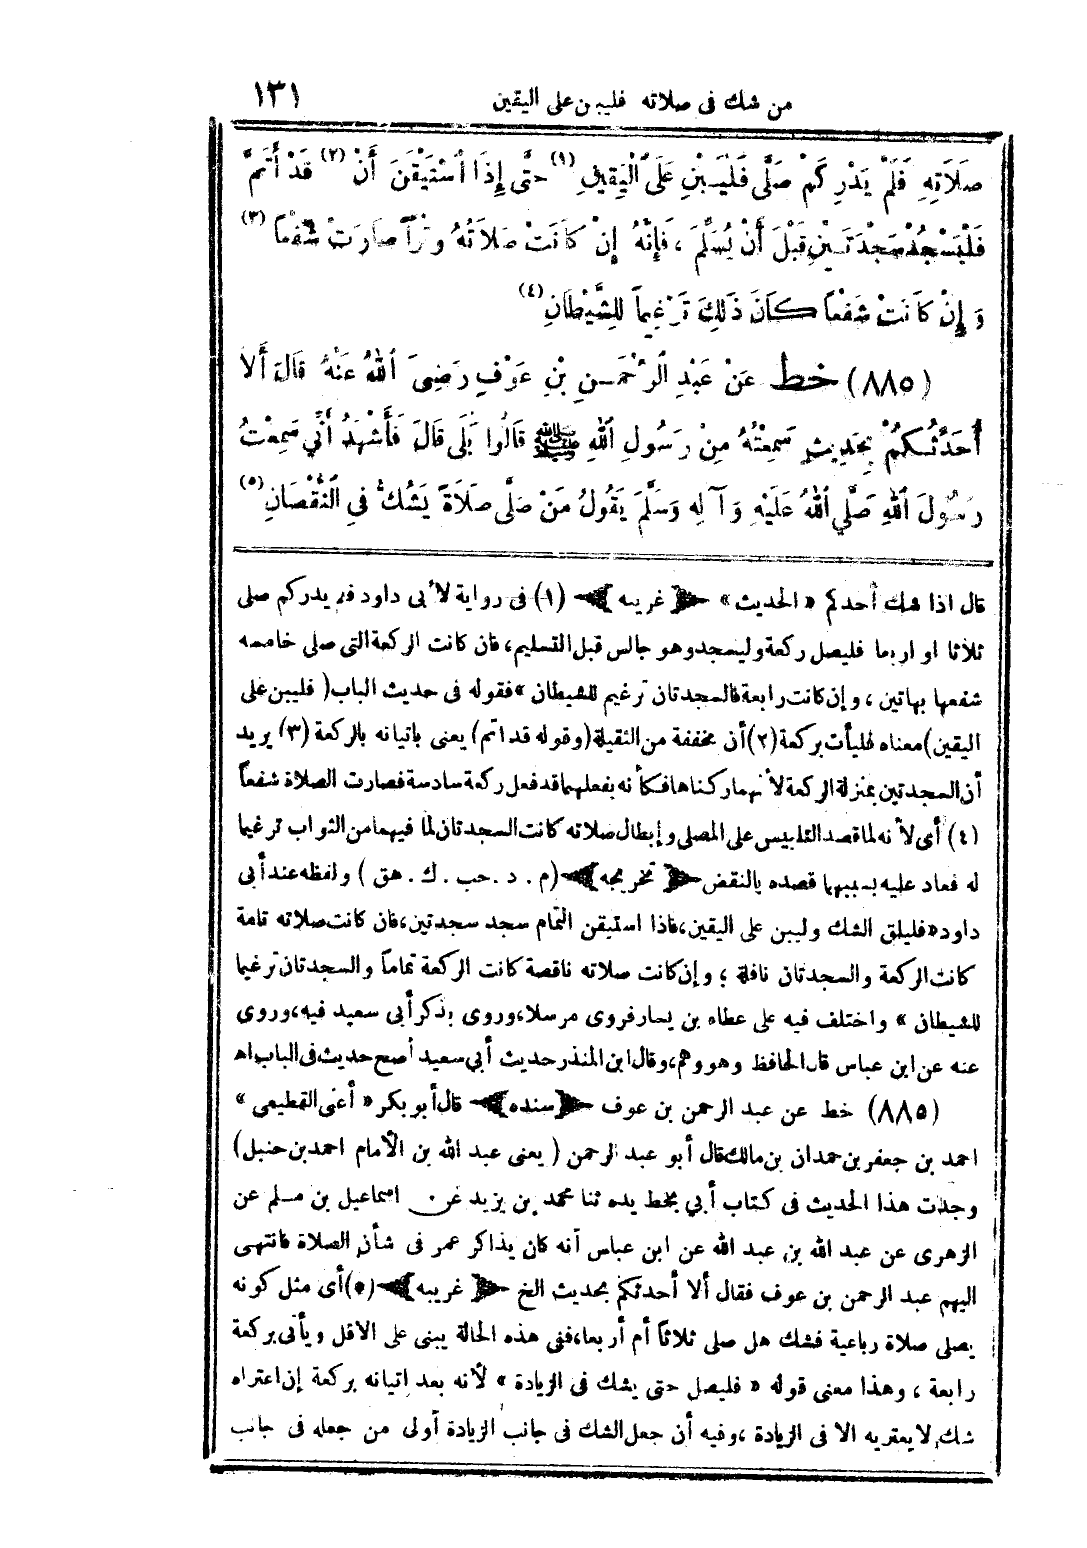 من شك فى صلاته فليبن على اليقين ١٣١
صَلَاتِهِ فَلَمْ يَدْرِ كَمْ صَلَّى فَلْيَبْنِ عَلَى الْيَقِينِ (١) حَتَّى إِذَا اسْتَيْقَنَ أَنْ (٢) قَدْ أَتَمَّ
فَلْيَسْجُدْ سَجْدَتَيْنِ قَبْلَ أَنْ يُسَلِّمَ ، فَإِنَّهُ إِنْ كَانَتْ صَلَاتُهُ وِتْرًا صَارَتْ شَفْعًا (٣)
وَإِنْ كَانَتْ شَفْعًا كَانَ ذَلِكَ تَرْغِيمًا لِلشَّيْطَانِ (٤)
(٨٨٥) خط عَنْ عَبْدِ الرَّحْمَنِ بْنِ عَوْفٍ رَضِىَ اللهُ عَنْهُ قَالَ أَلَا
أُحَدِّثُكُمْ بِحَدِيثٍ سَمِعْتُهُ مِنْ رَسُولِ اللهِ ﷺ قَالُوا بَلَى قَالَ فَأَشْهَدُ أَنِّي سَمِعْتُ
رَسُولَ اللهِ صَلَّى اللهُ عَلَيْهِ وَآلِهِ وَسَلَّمَ يَقُولُ مَنْ صَلَّى صَلَاةً يَشُكُّ فِى النُّقْصَانِ (٥)
قال اذا شك أحدكم «الحديث» ﴿غريبه﴾ (١) فى رواية لأبى داود فلم يدركم صلى
ثلاثا او اربعا فليصل ركعة وليسجد وهو جالس قبل التسليم، فان كانت الركعة التى صلى خامسه
شفعها بهاتين ، وإن كانت رابعة فالسجدتان ترغيم للشيطان» فقوله فى حديث الباب ( فليبن على
اليقين) معناه فليأت بركعة (٢) أن مخففة من الثقيلة (وقوله قد اتم) يعنى باتيانه بالركعة (٣) يريد
أن السجدتين بمنزلة الركعة لأنهما ركناها فكأنه بفعلهما قد فعل ركعة سادسة فصارت الصلاة شفعاً
(٤) أى لأنه لما قصد التلبيس على المصلى وإبطال صلاته كانت السجدتان لما فيهما من الثواب ترغيما
له فعاد عليه بسببهما قصده بالنقض ﴿تخريجه﴾ (م . د . حب . ك . هق ) ولفظه عند أبى
داود «فليلق الشك وليبن على اليقين، فاذا استيقن التمام سجد سجدتين، فان كانت صلاته تامة
كانت الركعة والسجدتان نافلة ؛ وإن كانت صلاته ناقصة كانت الركعة تماماً والسجدتان ترغيما
للشيطان» واختلف فيه على عطاء بن يسار فروى مرسلا، وروى بذكر أبى سعيد فيه، وروى
عنه عن ابن عباس قال الحافظ وهو وهم، وقال ابن المنذر حديث أبي سعيد أصح حديث فى الباب اه
(٨٨٥) خط عن عبد الرحمن بن عوف ﴿سنده﴾ قال أبو بكر «أعنى القطيعى»
احمد بن جعفر بن حمدان بن مالك قال أبو عبد الرحمن ( يعنى عبد الله بن الأمام احمد بن حنبل)
وجدت هذا الحديث فى كتاب أبي بخط يده ثنا محمد بن يزيد عن اسماعيل بن مسلم عن
الزهرى عن عبد الله بن عبد الله عن ابن عباس أنه كان يذاكر عمر فى شأن الصلاة فانتهى
اليهم عبد الرحمن بن عوف فقال ألا أحدثكم بحديث الخ ﴿غريبه﴾ (٥) أى مثل كونه
يصلى صلاة رباعية فشك هل صلى ثلاثاً أم أربعا، فنى هذه الحالة يبنى على الاقل ويأتى بركعة
رابعة ، وهذا معنى قوله « فليصل حتى يشك فى الزيادة » لأنه بعد اتيانه بركعة إن اعتراه
شك لا يعتريه الا فى الزيادة ، وفيه أن جعل الشك فى جانب الزيادة أولى من جعله فى جانب